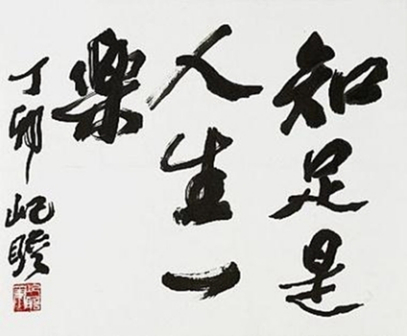 知足是
人生一
樂
丁卯屺瞻